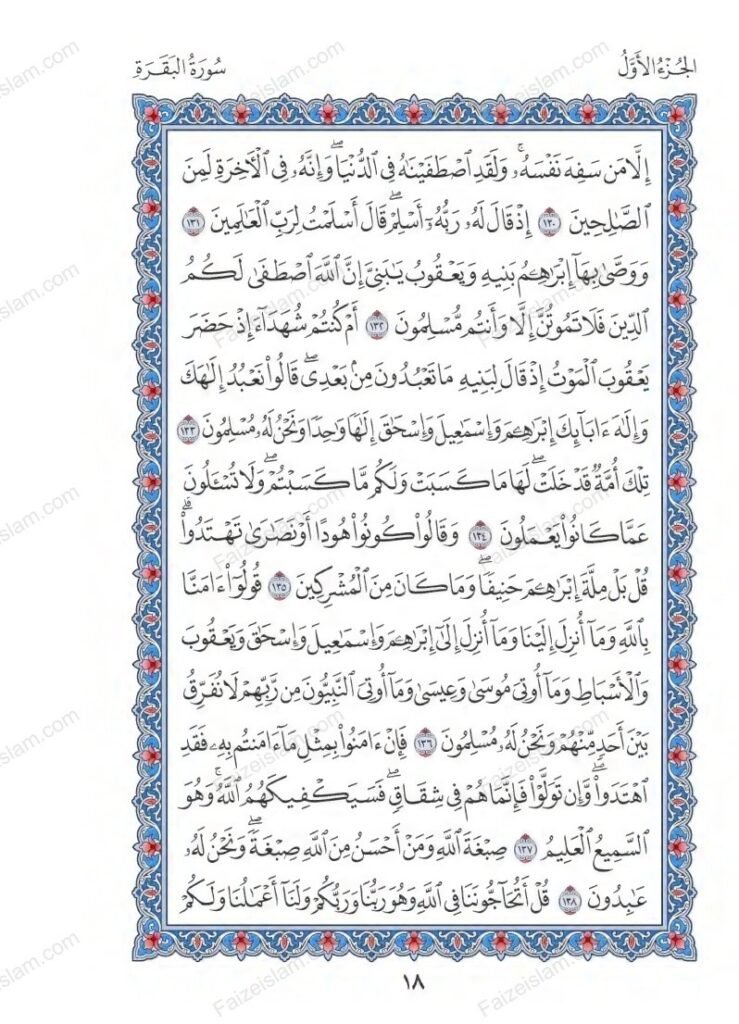 الجُزْءُ الأَوَّلُ
سُورَةُ البَقَرَةِ
إِلَّا مَن سَفِهَ نَفْسَهُۥ ۚ وَلَقَدِ ٱصْطَفَيْنَٰهُ فِى ٱلدُّنْيَا ۖ وَإِنَّهُۥ فِى ٱلْأَخِرَةِ لَمِنَ
ٱلصَّٰلِحِينَ ١٣٠ إِذْ قَالَ لَهُۥ رَبُّهُۥٓ أَسْلِمْ ۖ قَالَ أَسْلَمْتُ لِرَبِّ ٱلْعَٰلَمِينَ ١٣١
وَوَصَّىٰ بِهَآ إِبْرَٰهِـۧمُ بَنِيهِ وَيَعْقُوبُ يَٰبَنِىَّ إِنَّ ٱللَّهَ ٱصْطَفَىٰ لَكُمُ
ٱلدِّينَ فَلَا تَمُوتُنَّ إِلَّا وَأَنتُم مُّسْلِمُونَ ١٣٢ أَمْ كُنتُمْ شُهَدَآءَ إِذْ حَضَرَ
يَعْقُوبَ ٱلْمَوْتُ إِذْ قَالَ لِبَنِيهِ مَا تَعْبُدُونَ مِنۢ بَعْدِى ۖ قَالُوا۟ نَعْبُدُ إِلَٰهَكَ
وَإِلَٰهَ ءَابَآئِكَ إِبْرَٰهِـۧمَ وَإِسْمَٰعِيلَ وَإِسْحَٰقَ إِلَٰهًا وَٰحِدًا وَنَحْنُ لَهُۥ مُسْلِمُونَ ١٣٣
تِلْكَ أُمَّةٌ قَدْ خَلَتْ ۖ لَهَا مَا كَسَبَتْ وَلَكُم مَّا كَسَبْتُمْ ۖ وَلَا تُسْـَٔلُونَ
عَمَّا كَانُوا۟ يَعْمَلُونَ ١٣٤ وَقَالُوا۟ كُونُوا۟ هُودًا أَوْ نَصَٰرَىٰ تَهْتَدُوا۟ ۗ
قُلْ بَلْ مِلَّةَ إِبْرَٰهِـۧمَ حَنِيفًا ۖ وَمَا كَانَ مِنَ ٱلْمُشْرِكِينَ ١٣٥ قُولُوٓا۟ ءَامَنَّا
بِٱللَّهِ وَمَآ أُنزِلَ إِلَيْنَا وَمَآ أُنزِلَ إِلَىٰٓ إِبْرَٰهِـۧمَ وَإِسْمَٰعِيلَ وَإِسْحَٰقَ وَيَعْقُوبَ
وَٱلْأَسْبَاطِ وَمَآ أُوتِىَ مُوسَىٰ وَعِيسَىٰ وَمَآ أُوتِىَ ٱلنَّبِيُّونَ مِن رَّبِّهِمْ لَا نُفَرِّقُ
بَيْنَ أَحَدٍ مِّنْهُمْ وَنَحْنُ لَهُۥ مُسْلِمُونَ ١٣٦ فَإِنْ ءَامَنُوا۟ بِمِثْلِ مَآ ءَامَنتُم بِهِۦ فَقَدِ
ٱهْتَدَوا۟ ۖ وَّإِن تَوَلَّوْا۟ فَإِنَّمَا هُمْ فِى شِقَاقٍ ۖ فَسَيَكْفِيكَهُمُ ٱللَّهُ ۚ وَهُوَ
ٱلسَّمِيعُ ٱلْعَلِيمُ ١٣٧ صِبْغَةَ ٱللَّهِ وَمَنْ أَحْسَنُ مِنَ ٱللَّهِ صِبْغَةً ۖ وَنَحْنُ لَهُۥ
عَٰبِدُونَ ١٣٨ قُلْ أَتُحَآجُّونَنَا فِى ٱللَّهِ وَهُوَ رَبُّنَا وَرَبُّكُمْ وَلَنَآ أَعْمَٰلُنَا وَلَكُمْ
١٨
Faizeislam.com